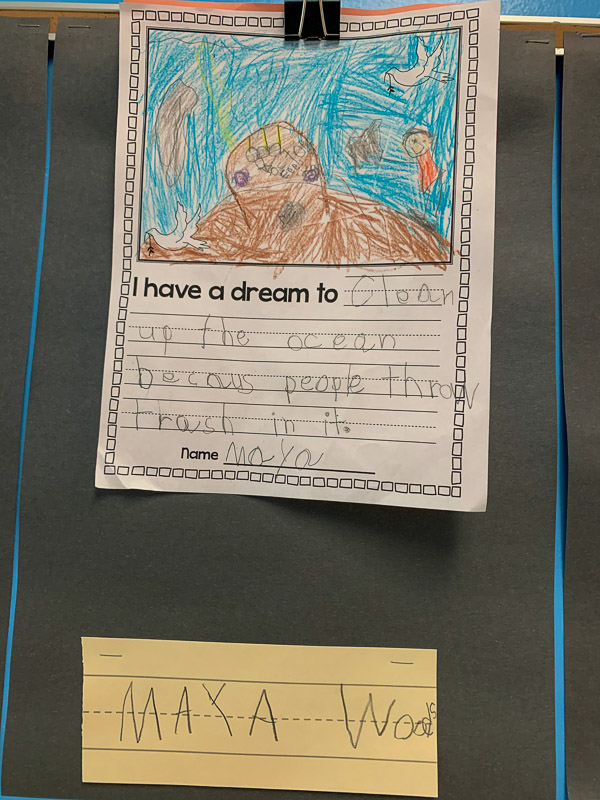 I have a dream to Clean
up the ocean
becaus people throw
trash in it.
Name Maya
MAYA Woods